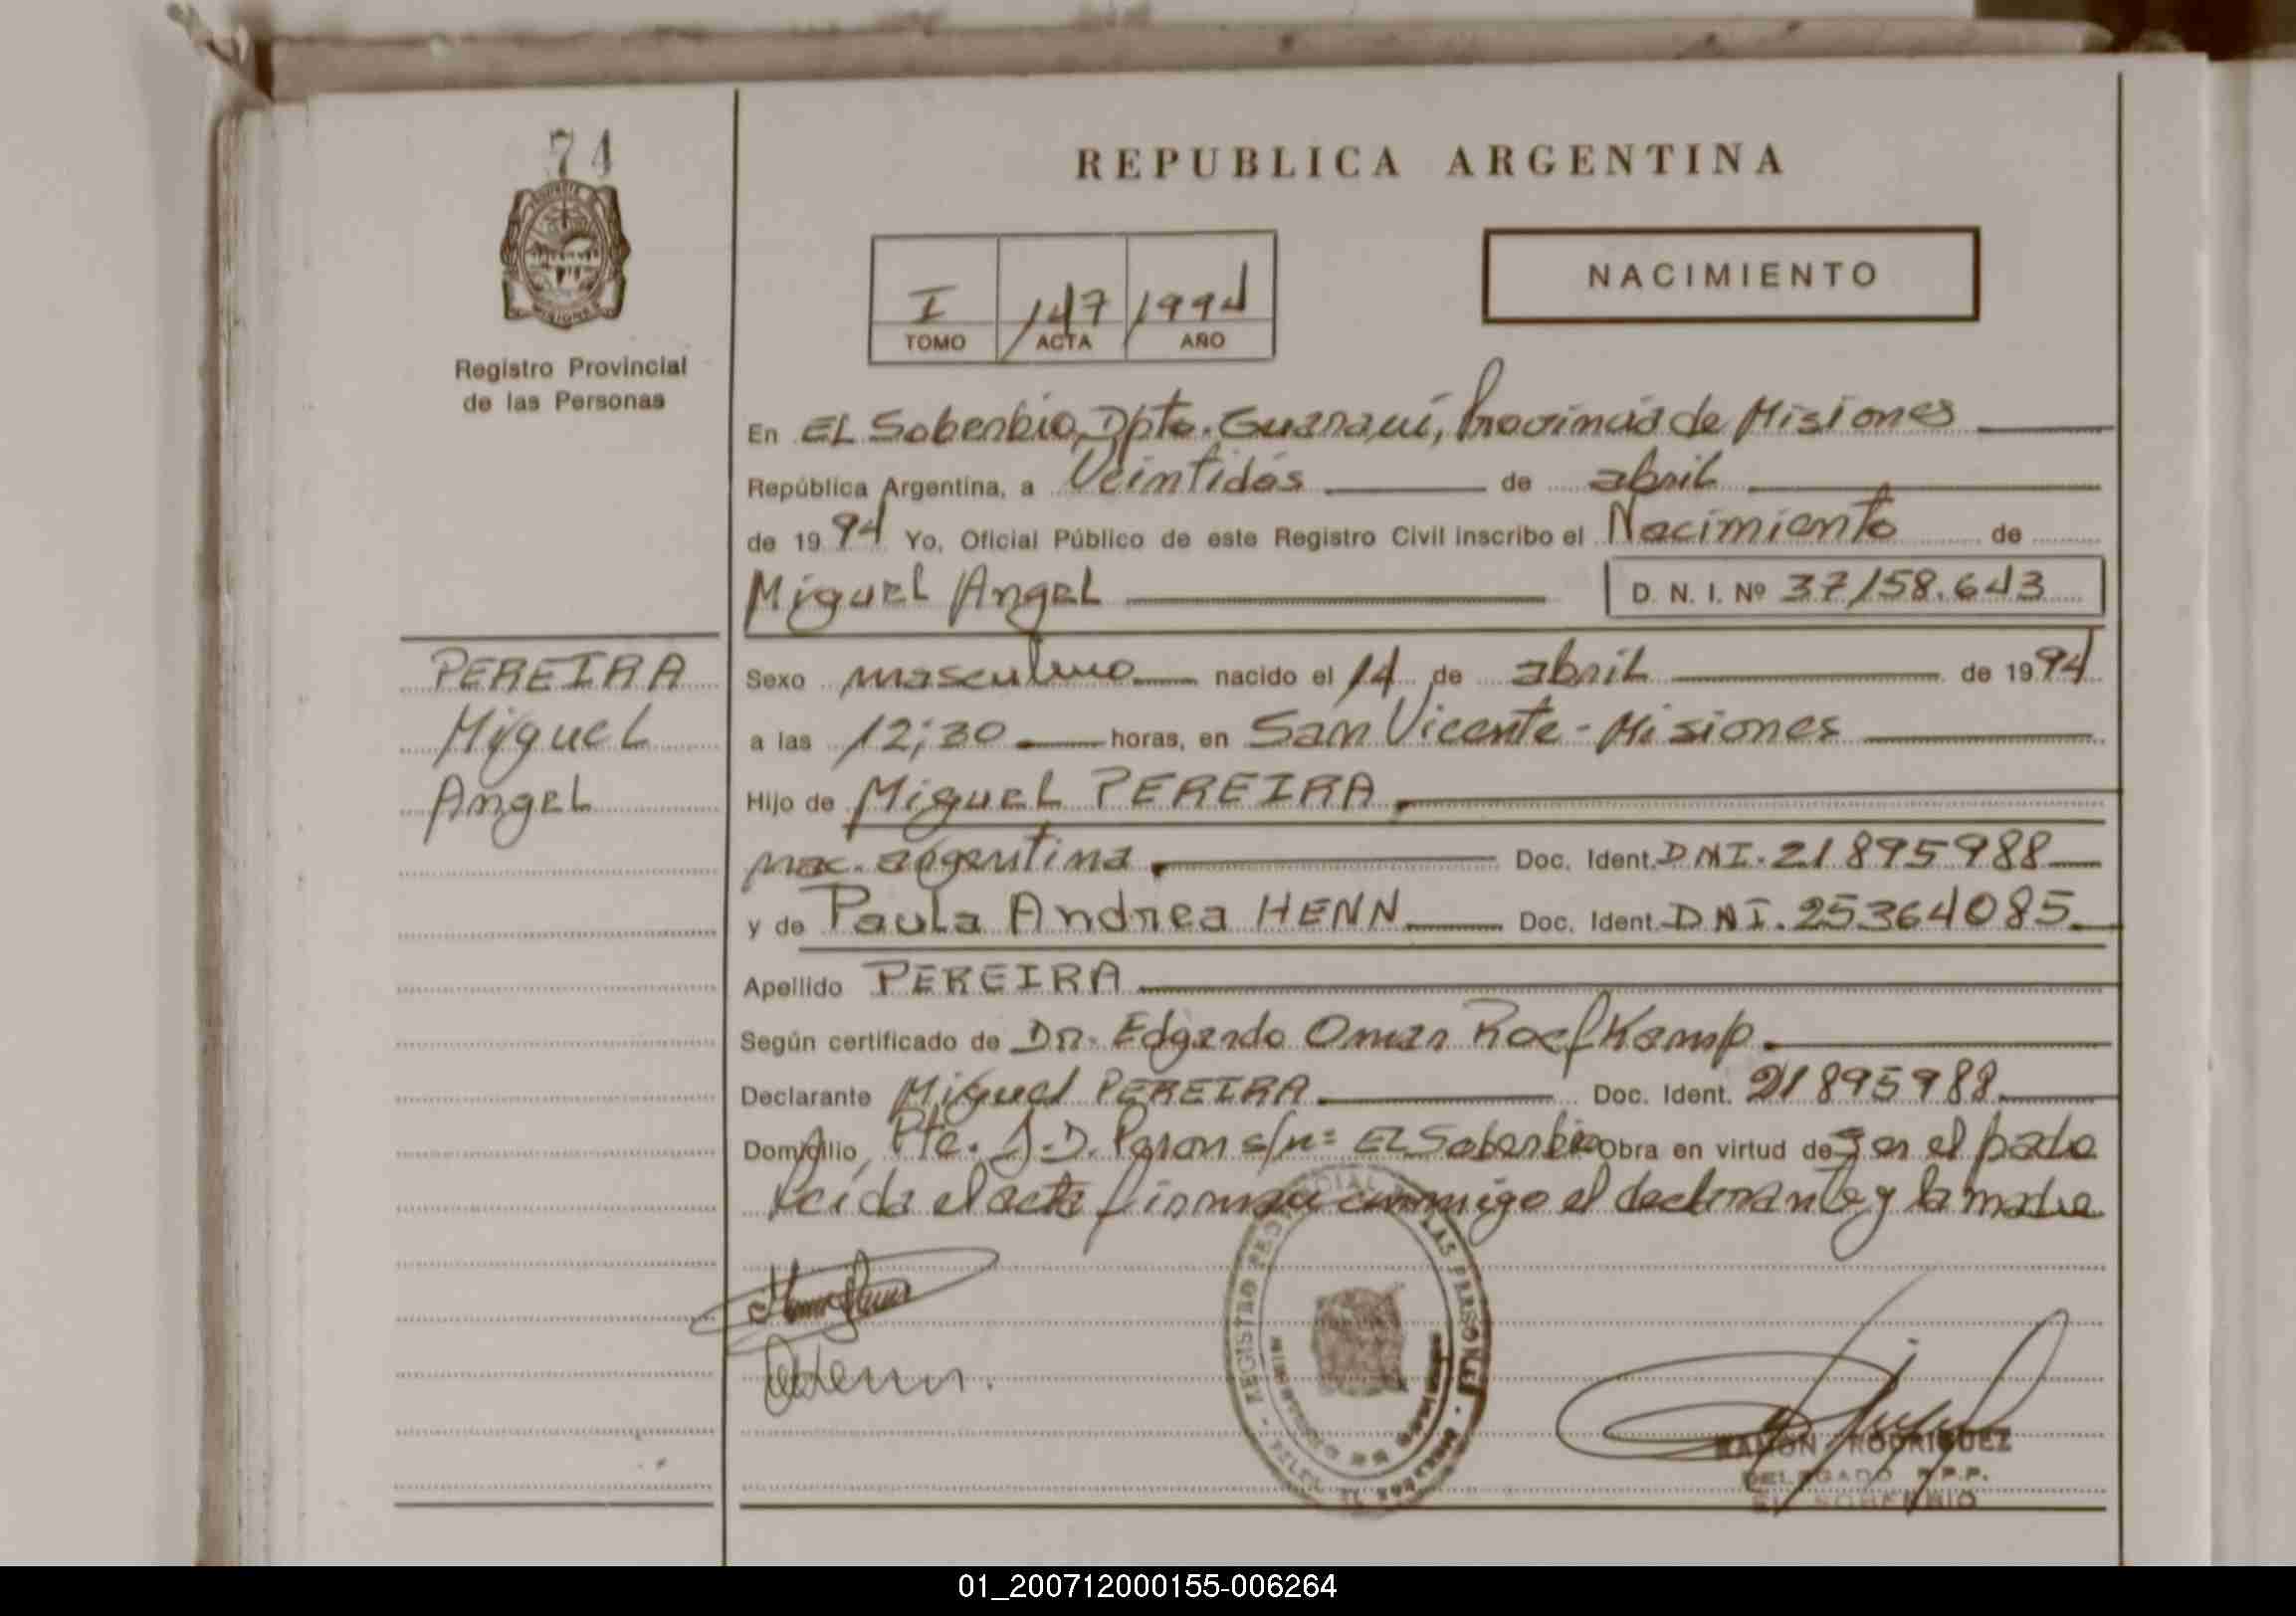 74
REPUBLICA ARGENTINA
I 147 1994
TOMO ACTA AÑO
NACIMIENTO
Registro Provincial
de las Personas
En EL Soberbio, Dpto. Guaraní, Provincia de Misiones
República Argentina, a Veintidós de abril
de 1994 Yo, Oficial Público de este Registro Civil inscribo el Nacimiento de
Miguel Angel D. N. I. Nº 37158.643
PEREIRA
Miguel
Angel
Sexo masculino nacido el 14 de abril de 1994
a las 12;30 horas, en San Vicente - Misiones
Hijo de Miguel PEREIRA,
nac. argentina, Doc. Ident. DNI. 21895988
y de Paula Andrea HENN Doc. Ident. DNI. 25364085
Apellido PEREIRA
Según certificado de Dr. Edgardo Omar Roefkamp.
Declarante Miguel PEREIRA Doc. Ident. 21895988
Domicilio, Pte. J.D. Peron s/nº EL Soberbio Obra en virtud de ser el padre
Leída el acta firman conmigo el declarante y la madre
REGISTRO LAS PERSONAS
RAMON RODRIGUEZ
DELEGADO R.P.P.
EL SOBERBIO
01_200712000155-006264